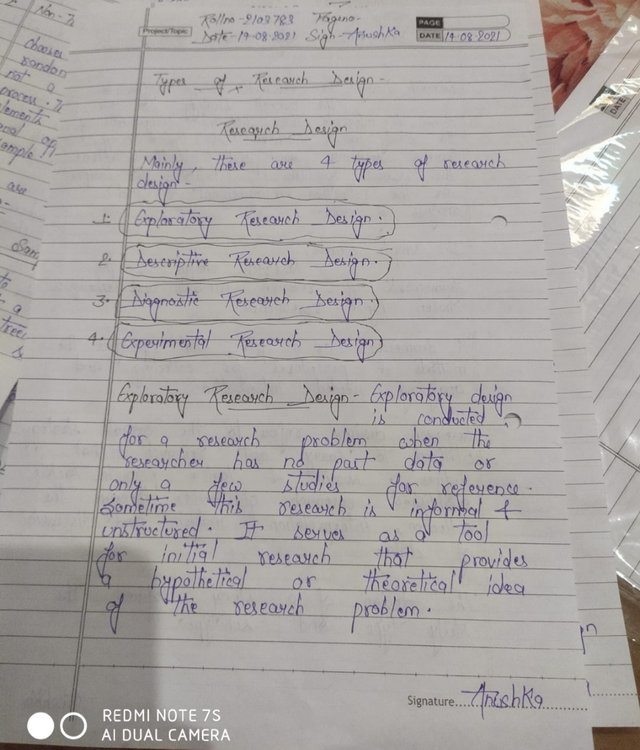 Rollno-2103783 Pageno-
Project/Topic Date-19-08-2021 Sign-Anushka
PAGE
DATE 19-08-2021
Types of Research Design-
Research Design
Mainly, there are 4 types of research
design-
1. Exploratory Research Design.
2. Descriptive Research Design.
3. Diagnostic Research Design.
4. Experimental Research Design
Exploratory Research Design- Exploratory design
is conducted
for a research problem when the
researcher has no past data or
only a few studies for reference.
Sometime this research is informal &
unstructured. It serves as a tool
for initial research that provides
a hypothetical or theoretical idea
of the research problem.
Signature....Anushka
Non-
Chooses
random
not a
process.
elements
and of
sample
are
to
a
tree
REDMI NOTE 7S
AI DUAL CAMERA